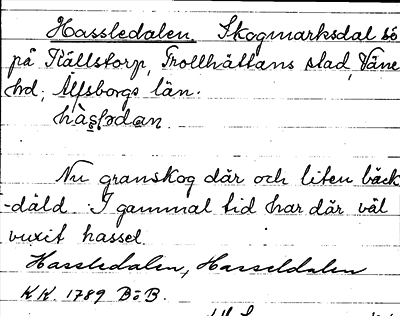 Hassledalen, Skogmarksdal sö
på Källstorp, Trollhättans stad, Väne
hd, Älfsborgs län.
hàs̥lədạn.
Nu granskog där och liten bäck
-däld. I gammal tid har där väl
vuxit hassel.
Hassledalen, Hasseldalen
KK. 1789 BoB.